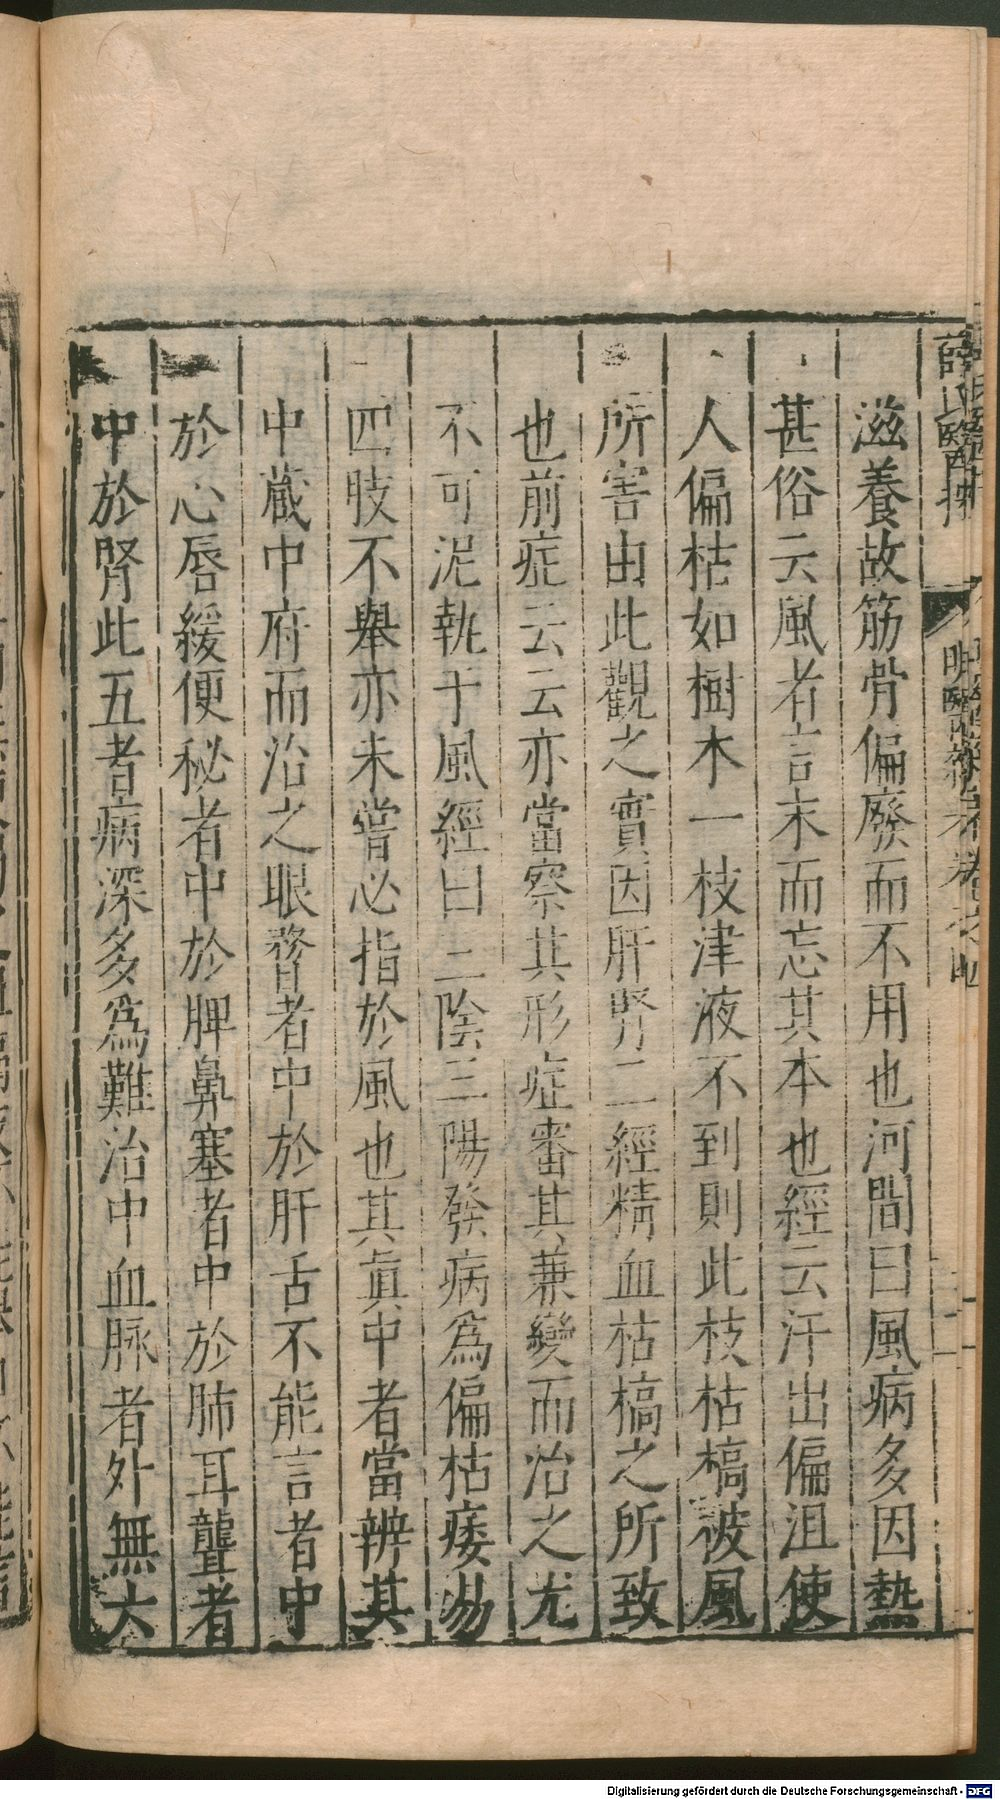 滋養故筋骨偏廢而不用也河間曰風病多因熱
甚俗云風者言末而忘其本也經云汗出偏沮使
人偏枯如樹木一枝津液不到則此枝枯槁被風
所害由此觀之實因肝腎二經精血枯槁之所致
也前症云云亦當察其形症審其兼變而治之尤
不可泥執于風經曰三陰三陽發病爲偏枯痿易
四肢不舉亦未嘗必指於風也其眞中者當辨其
中蔵中府而治之眼瞀者中於肝舌不能言者中
於心唇緩便秘者中於脾鼻塞者中於肺耳聾者
中於腎此五者病深多爲難治中血脉者外無六
Digitalisierung gefördert durch die Deutsche Forschungsgemeinschaft - DFG